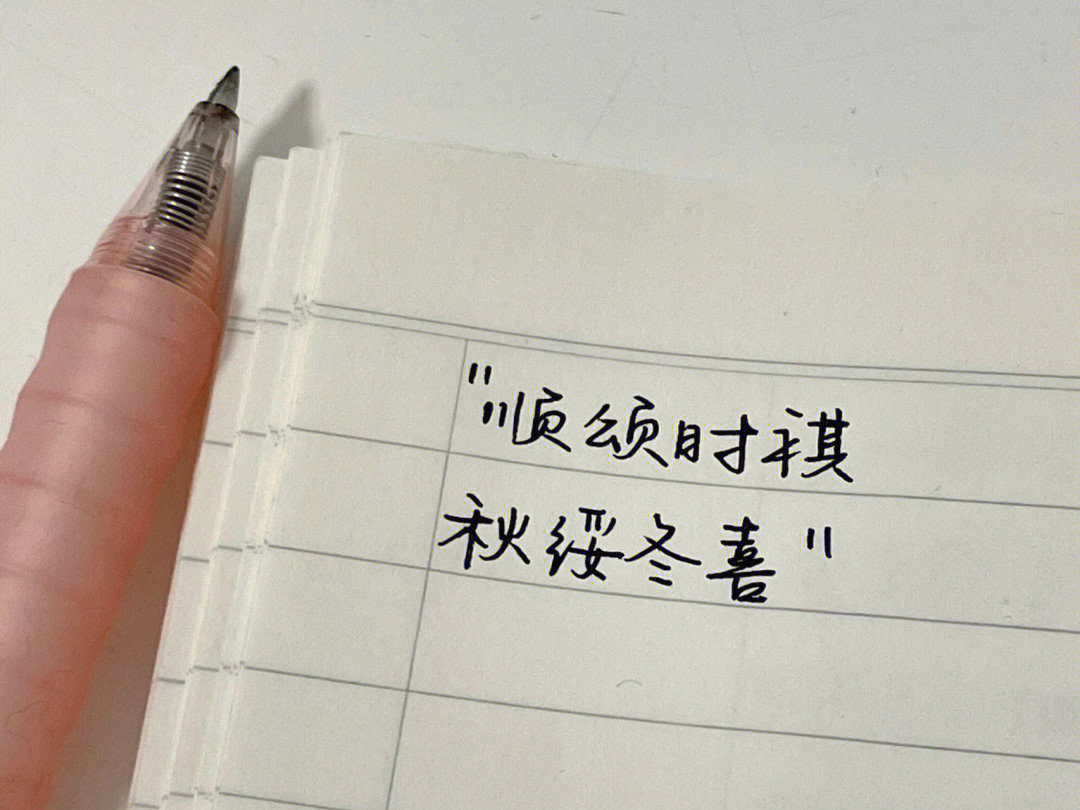 "顺颂时祺
秋绥冬喜"